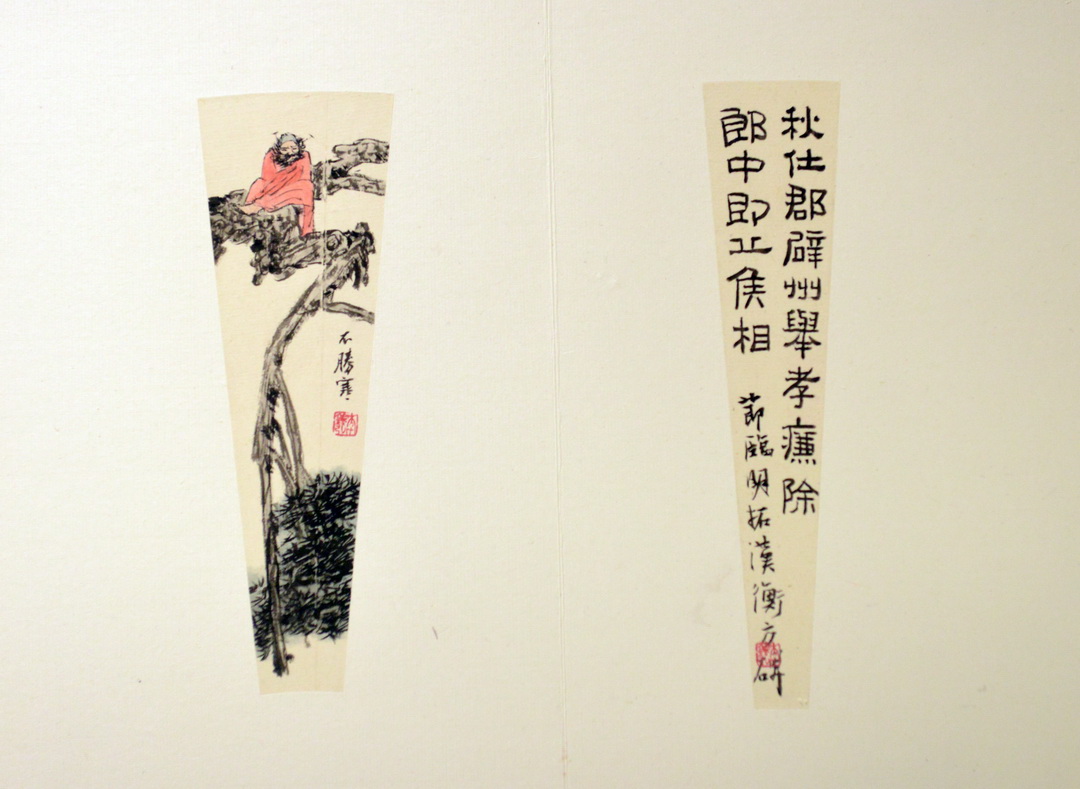 秋仕郡辟州舉孝廉除
郎中即丘侯相
節臨明拓漢衡方碑
不勝寒